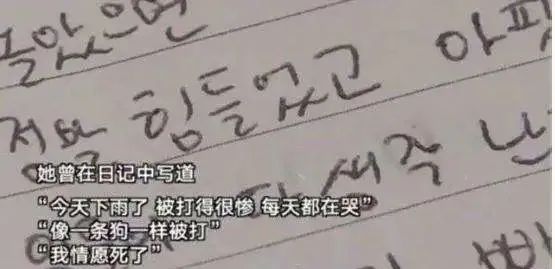 정말 힘들었고
생각
她曾在日记中写道
“今天下雨了 被打得很惨 每天都在哭”
“像一条狗一样被打”
“我情愿死了”